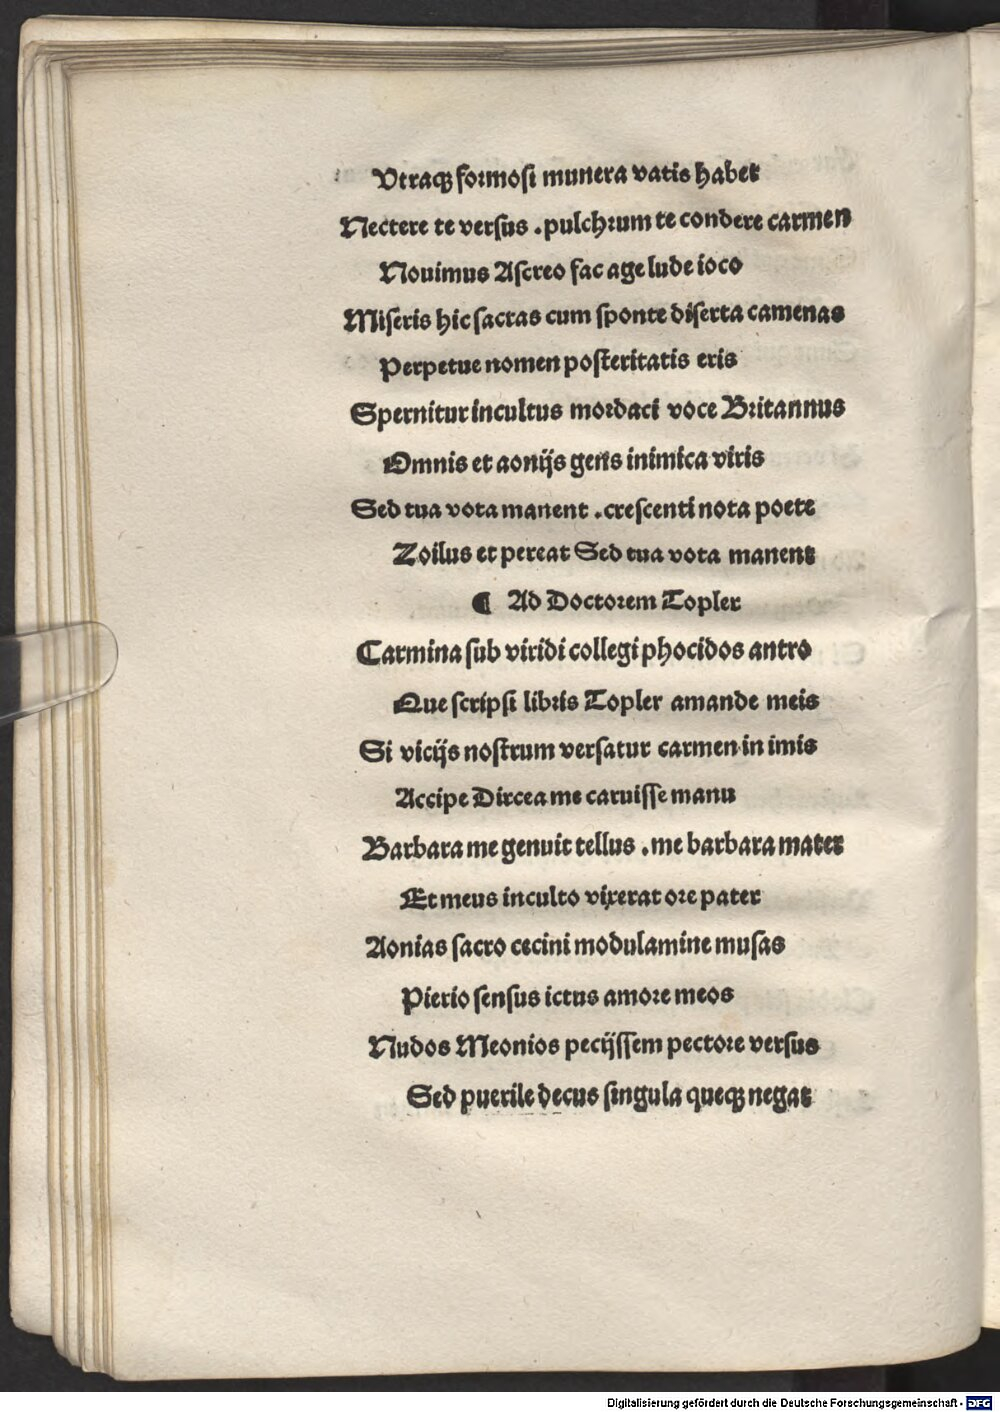 Utraqꝫ formosi munera vatis habet
Nectere te versus .pulchrum te condere carmen
Nouimus Ascreo fac age lude ioco
Miseris hic sacras cum sponte diserta camenas
Perpetue nomen posteritatis eris
Spernitur incultus mordaci voce Britannus
Omnis et aonijs gens inimica viris
Sed tua vota manent .crescenti nota poete
Zoilus et pereat Sed tua vota manent
¶ Ad Doctorem Topler
Carmina sub viridi collegi phocidos antro
Que scripsi libris Topler amande meis
Si vicijs nostrum versatur carmen in imis
Accipe Dircea me caruisse manu
Barbara me genuit tellus .me barbara mater
Et meus inculto vixerat ore pater
Aonias sacro cecini modulamine musas
Pierio sensus ictus amore meos
Nudos Meonios pecijssem pectore versus
Sed puerile decus singula queqꝫ negat
Digitalisierung gefördert durch die Deutsche Forschungsgemeinschaft - DFG